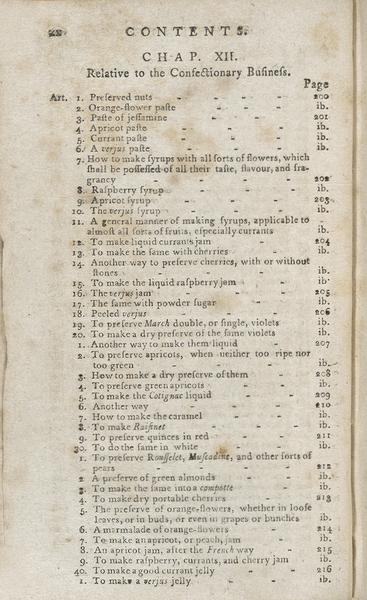 xx CONTENTS.
CHAP. XII.
Relative to the Confectionary Business.
Page
Art. 1. Preserved nuts - - - 200
2. Orange-flower paste - - - ib.
3. Paste of jessamine - - - 201
4. Apricot paste - - - ib.
5. Currant paste - - - ib.
6. A verjus paste - - - ib.
7. How to make syrups with all sorts of flowers, which
shall be possessed of all their taste, flavour, and fra-
grancy - - - 202
8. Raspberry syrup - - - ib.
9. Apricot syrup - - - 203
10. The verjus syrup - - - ib.
11. A general manner of making syrups, applicable to
almost all sorts of fruits, especially currants ib.
12. To make liquid currants jam - - 204
13. To make the same with cherries - ib.
14. Another way to preserve cherries, with or without
stones - - - ib.
15. To make the liquid raspberry jam - ib.
16. The verjus jam - - - 205
17. The same with powder sugar - - ib.
18. Peeled verjus - - - 206
19. To preserve March double, or single, violets ib.
20. To make a dry preserve of the same violets ib.
1. Another way to make them liquid - 207
2. To preserve apricots, when neither too ripe nor
too green - - - ib.
3. How to make a dry preserve of them - 208
4. To preserve green apricots - - ib.
5. To make the Cotignac liquid - - 209
6. Another way - - - 210
7. How to make the caramel - - ib.
8. To make Raisinet - - - ib.
9. To preserve quinces in red - - 211
30. To do the same in white - - ib.
1. To preserve Rousselet, Muscadine, and other sorts of
pears - - - 212
2. A preserve of green almonds - - ib.
3. To make the same into a compotte - ib.
4. To make dry portable cherries - - 213
5. The preserve of orange-flowers, whether in loose
leaves, or in buds, or even in grapes or bunches ib.
6. A marmalade of orange-flowers - 214
7. To make an apricot, or peach, jam - ib.
8. An apricot jam, after the French way - 215
9. To make raspberry, currants, and cherry jam ib.
40. To make a good currant jelly - - 216
1. To make a verjus jelly - - ib.